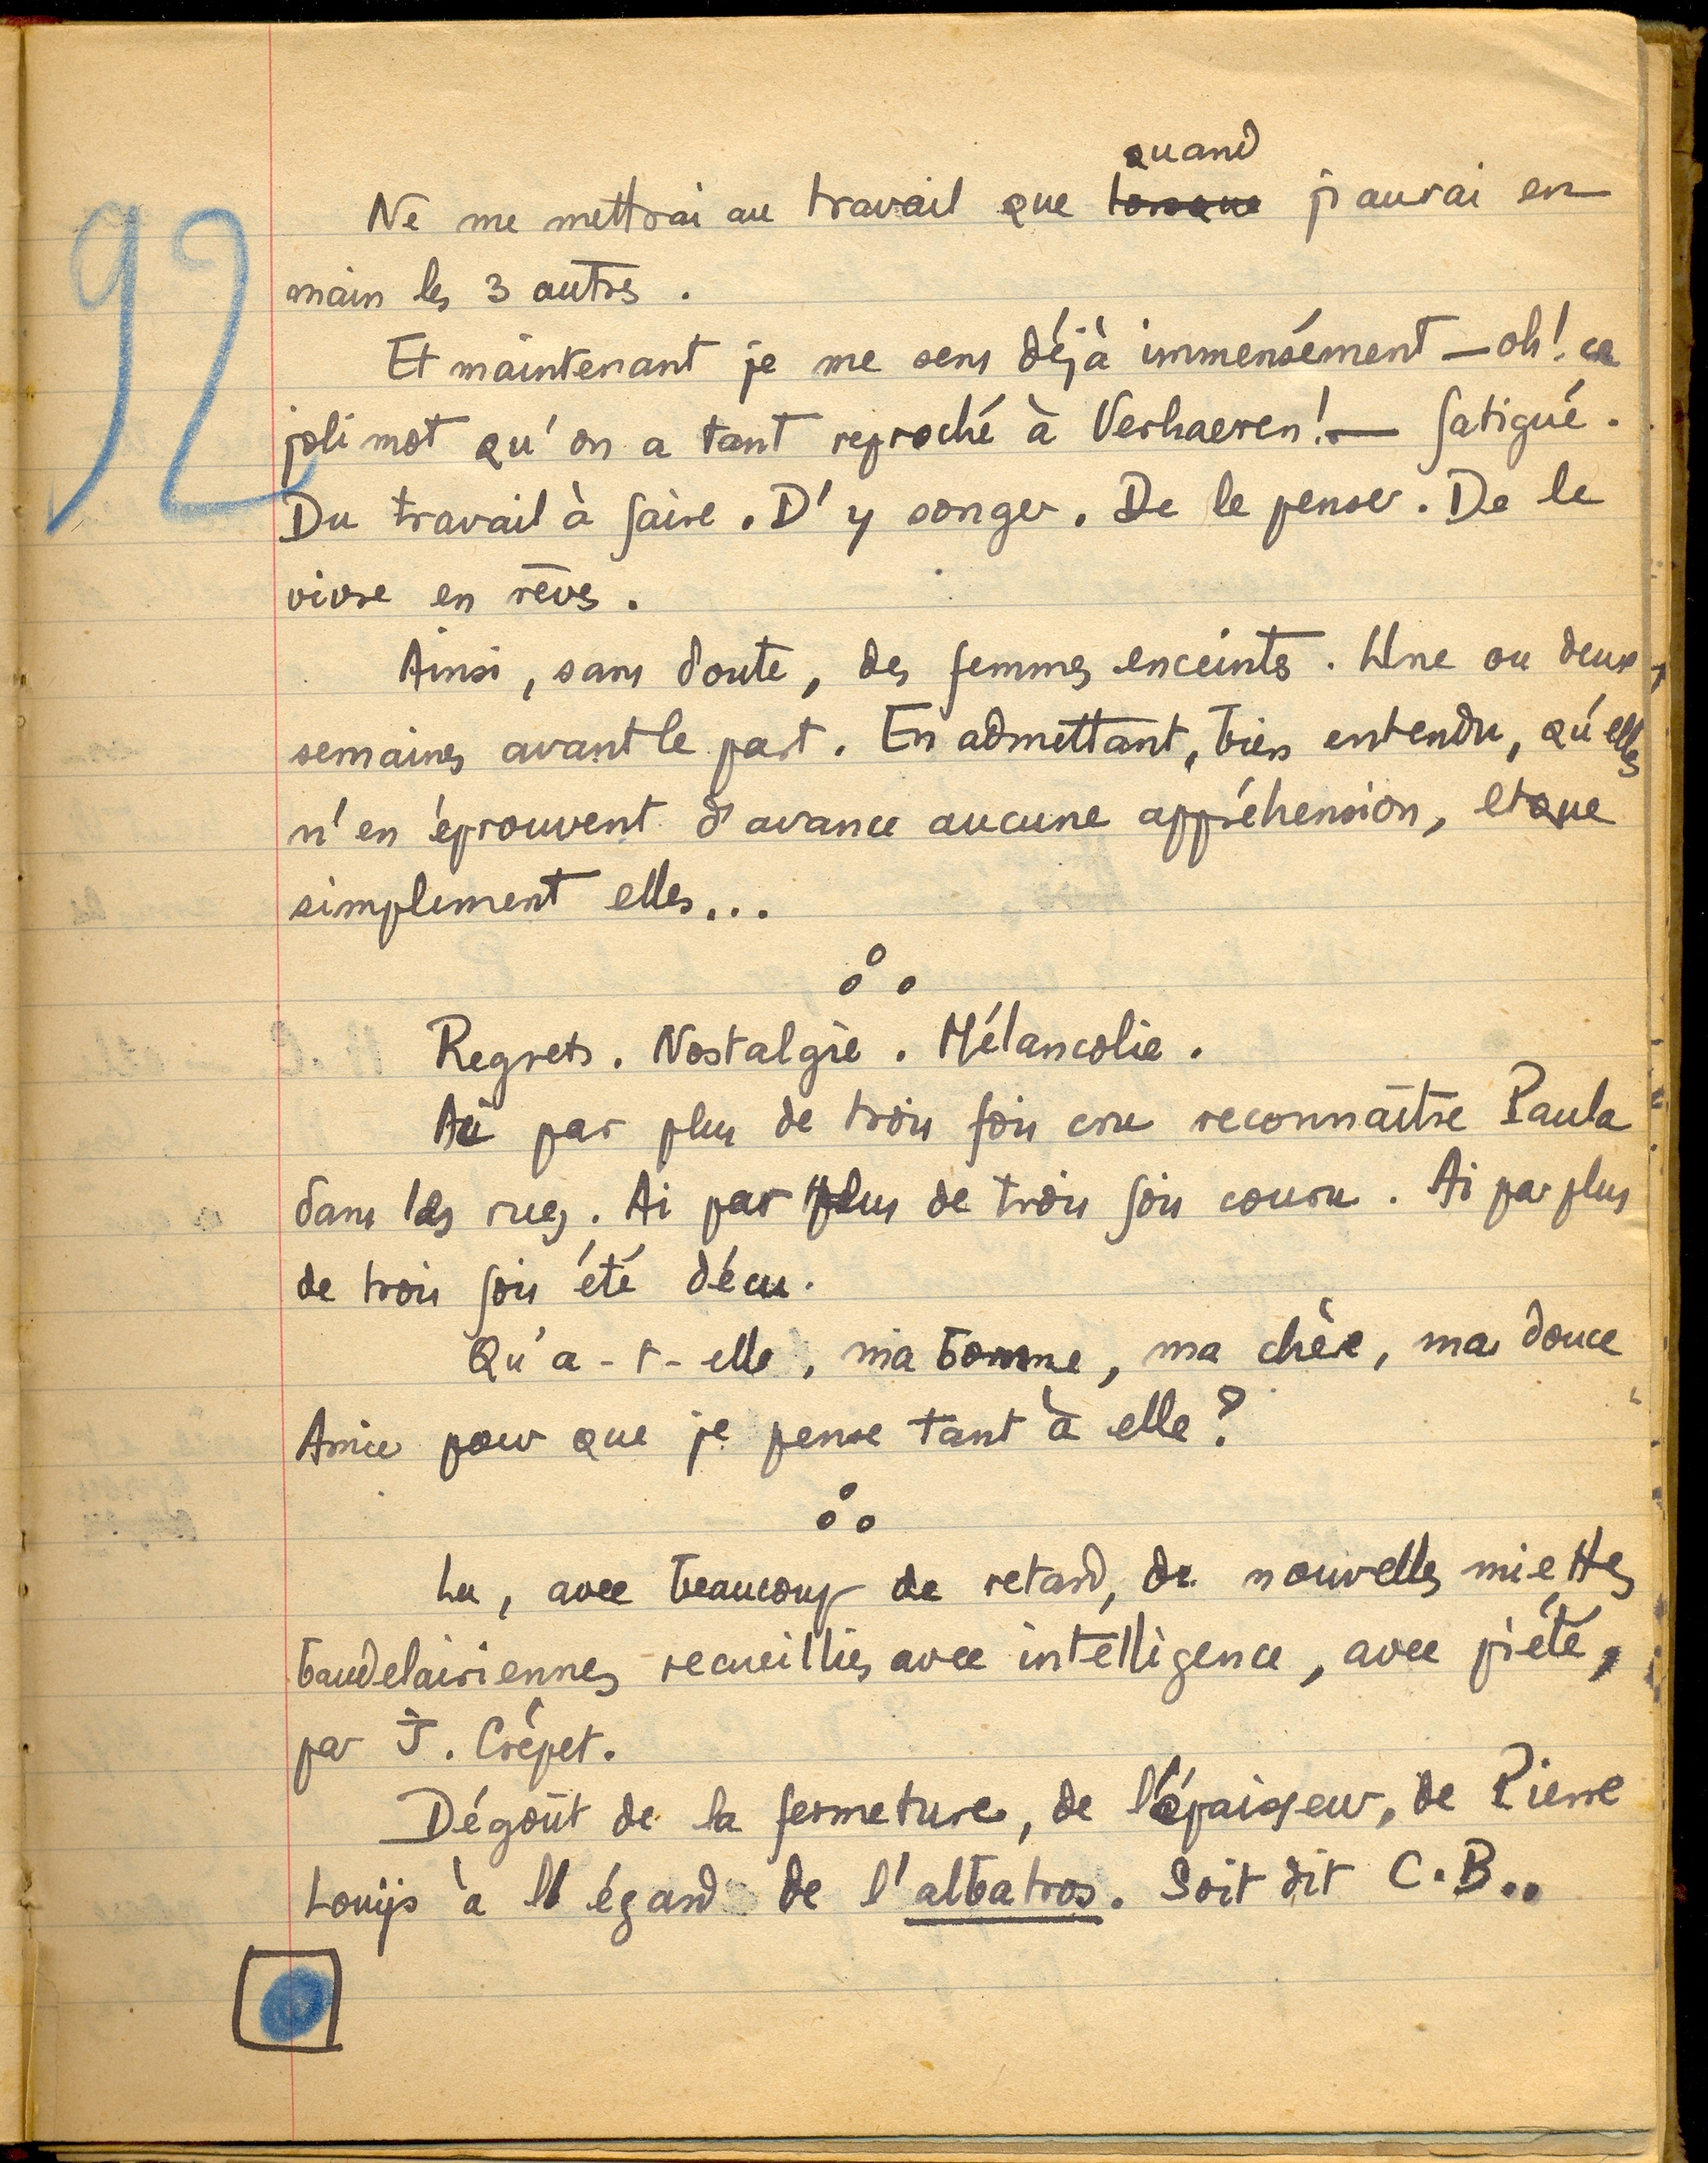 92
quand
Ne me mettrai au travail que lorsque j'aurai en
main les 3 autres.
Et maintenant je me sens déjà immensément — oh! ce
joli mot qu'on a tant reproché à Verhaeren! — fatigué.
Du travail à faire. D'y songer. De le penser. De le
vivre en rêves.
Ainsi, sans doute, des femmes enceintes. Une ou deux
semaines avant le part. En admettant, bien entendu, qu'elles
n'en éprouvent d'avance aucune appréhension, et que
simplement elles...
Regrets. Nostalgie. Mélancolie.
Ai par plus de trois fois cru reconnaître Paula
dans les rues. Ai par plus de trois fois couru. Ai par plus
de trois fois été décu.
Qu'a-t-elle, ma bonne, ma chère, ma douce
Amie pour que je pense tant à elle?
Lu, avec beaucoup de retard, de nouvelles miettes
baudelairiennes recueillies avec intelligence, avec piété,
par J. Crépet.
Dégoût de la fermeture, de l'épaisseur, de Pierre
Louÿs à l'égard de l'albatros. Soit dit C.B..